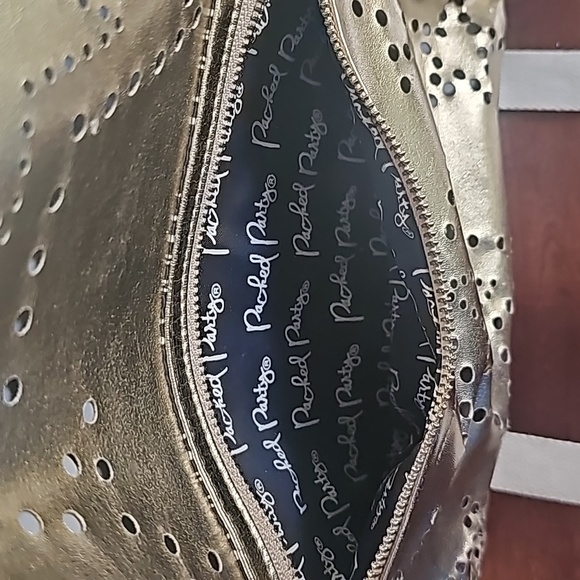 Packed Party®
Packed Party®
Packed Party®
Packed Party®
Packed Party®
Packed Party®
Packed Party®
Packed Party®